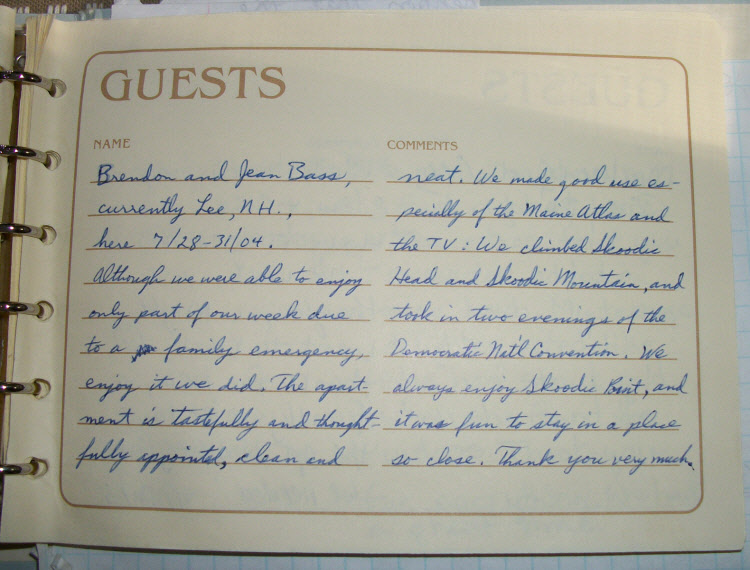 GUESTS
NAME
Brendon and Jean Bass,
currently Lee, N.H.,
here 7/28-31/04.
Although we were able to enjoy
only part of our week due
to a family emergency,
enjoy it we did. The apart-
ment is tastefully and thought-
fully appointed, clean and
COMMENTS
neat. We made good use es-
pecially of the Maine Atlas and
the TV: We climbed Skoodic
Head and Skoodic Mountain, and
took in two evenings of the
Democratic Nat'l Convention. We
always enjoy Skoodic Point, and
it was fun to stay in a place
so close. Thank you very much.